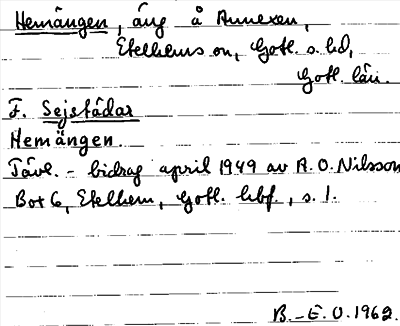 Hemängen, äng å Annexen,
Etelhems sn, Gotl. s. hd,
Gotl. län.
F. Sejstädar
Hemängen.
Tävl.-bidrag april 1949 av A.O. Nilsson
Box 6, Etelhem, Gotl. hbf., s. 1.
B.-E. O. 1962.